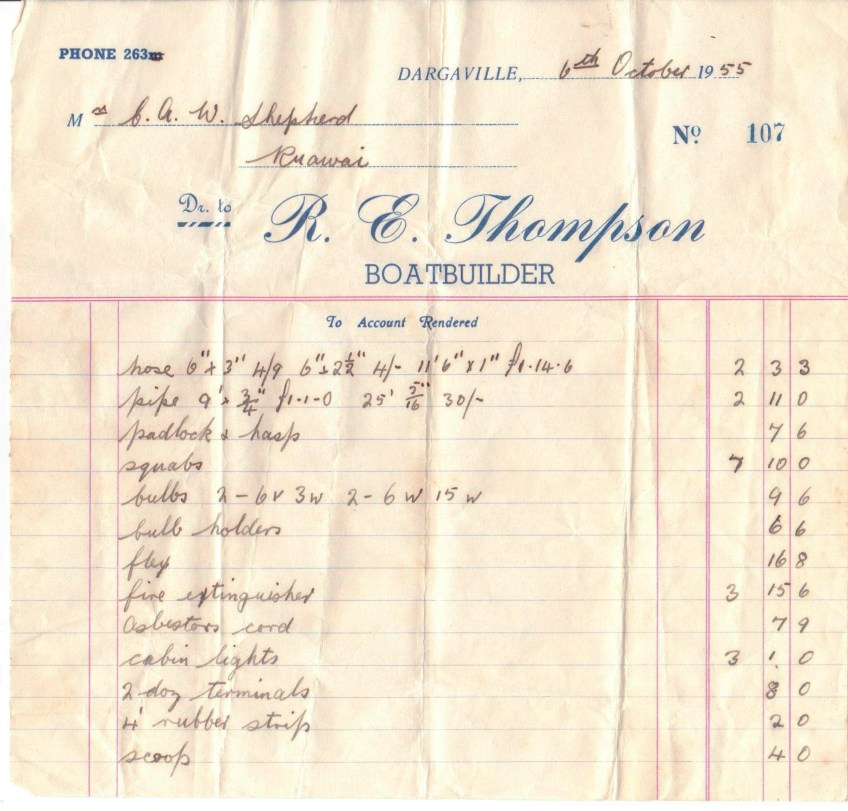 PHONE 263m
DARGAVILLE, 6th October 1955
Mrs C. A. W. Shepherd
Ruawai
No 107
Dr. to
R. E. Thompson
BOATBUILDER
To Account Rendered
hose 6" x 3" 4/9 6" x 2½" 4/- 11'6" x 1" £1-14-6 2 3 3
pipe 9' x ¾" £1-1-0 25' 5/16" 30/- 2 11 0
padlock & hasp 7 6
squabs 7 10 0
bulbs 2 - 6v 3w 2 - 6w 15w 9 6
bulb holders 6 6
flex 16 8
fire extinguisher 3 15 6
Asbestors cord 7 9
cabin lights 3 1 0
2 doz terminals 8 0
4' rubber strip 2 0
scoop 4 0